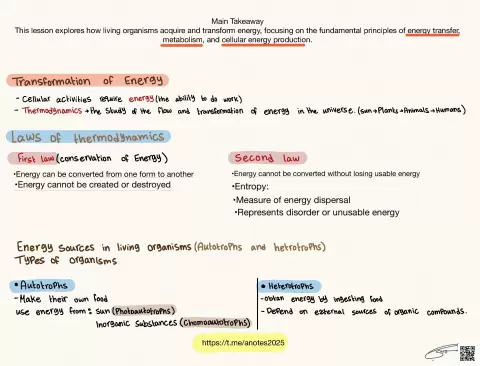 Main Takeaway
This lesson explores how living organisms acquire and transform energy, focusing on the fundamental principles of energy transfer,
metabolism, and cellular energy production.
Transformation of Energy
- Cellular activities require energy (the ability to do work)
- Thermodynamics → the study of the flow and transformation of energy in the universe. (sun→Plants→Animals→Humans)
Laws of thermodynamics
First law (conservation of Energy)
•Energy can be converted from one form to another
•Energy cannot be created or destroyed
Second law
•Energy cannot be converted without losing usable energy
•Entropy:
•Measure of energy dispersal
•Represents disorder or unusable energy
Energy sources in living organisms (Autotrophs and hetrotrophs)
Types of organisms
•Autotrophs
-Make their own food
use energy from: sun (Photoautotrophs)
inorganic substances (Chomoautotrophs)
•Heterotrophs
-obtian energy by ingesting food
-Depend on external sources of organic compounds.
https://t.me/anotes2025